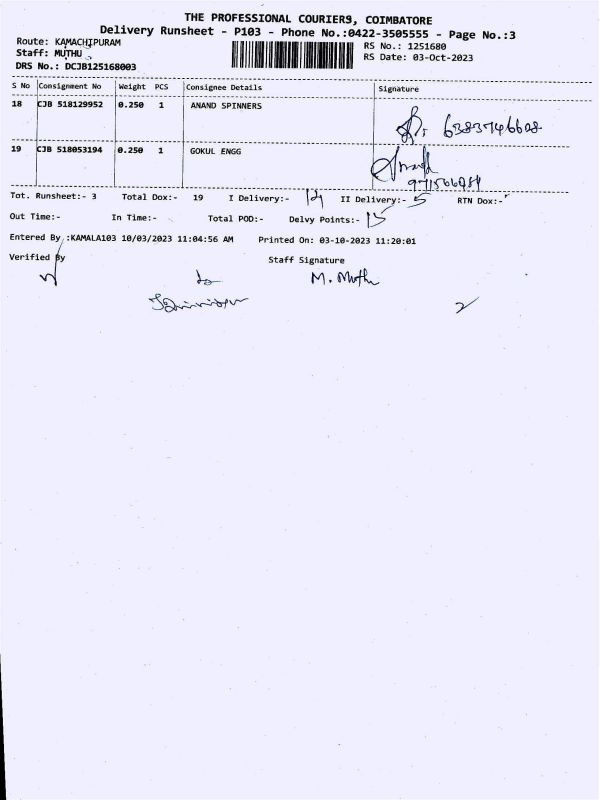 THE PROFESSIONAL COURIERS, COIMBATORE
Delivery Runsheet - P103 - Phone No.:0422-3505555 - Page No.:3
Route: KAMACHIPURAM RS No.: 1251680
Staff: MUTHU RS Date: 03-Oct-2023
DRS No.: DCJB125168003
S No Consignment No Weight PCS Consignee Details Signature
18 CJB 518129952 0.250 1 ANAND SPINNERS
6383746608
19 CJB 518053194 0.250 1 GOKUL ENGG
Tot. Runsheet:- 3 Total Dox:- 19 I Delivery:- 14 II Delivery:- 5 RTN Dox:-
Out Time:- In Time:- Total POD:- Delvy Points:- 15
Entered By :KAMALA103 10/03/2023 11:04:56 AM Printed On: 03-10-2023 11:20:01
Verified By Staff Signature
M. Muthu